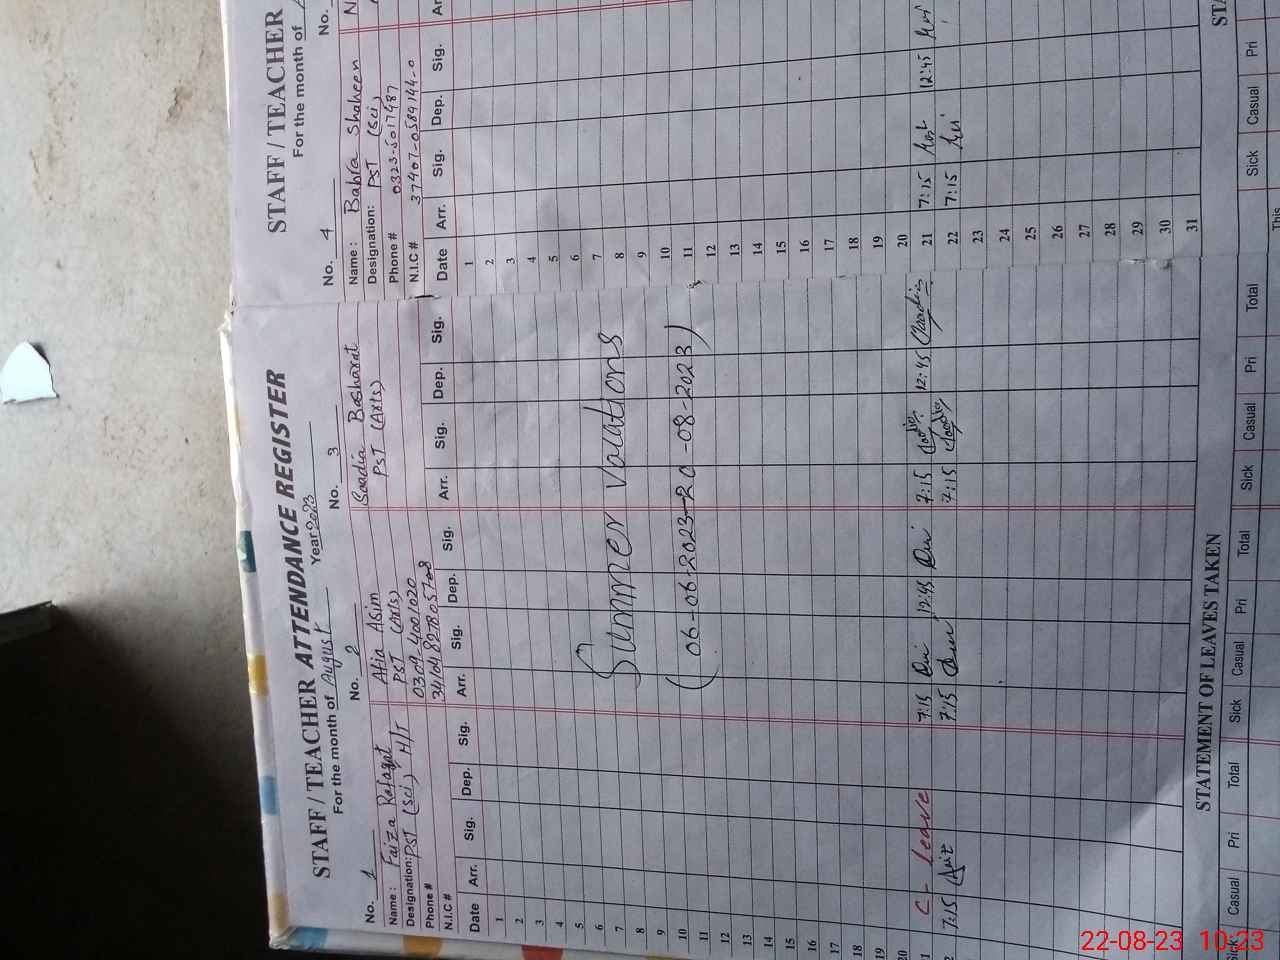 STAFF / TEACHER ATTENDANCE REGISTER
For the month of August Year 2023
No. 1
Name: Faiza Rafaqat
Designation: PST (Sci) H/T
Phone #
N.I.C #
No. 2
Atia Asim
PST (Arts)
0309-4001020
No. 3
Saadia Basharat
PST (Arts)
Date Arr. Sig. Dep. Sig. Arr. Sig. Dep. Sig. Arr. Sig. Dep. Sig.
1
2
3
4
5
6
7
8
9
10
11
12
13
14
15
16
17
18
19
20
Summer Vacations
(06-06-2023-20-08-2023)
C- Leave 7:15 12:45 7:15 12:45
7:15 7:15 7:15
STATEMENT OF LEAVES TAKEN
Sick Casual Pri Total Sick Casual Pri Total Sick Casual Pri Total
STAFF / TEACHER
For the month of
No. 4
No.
Name: Babra Shaheen
Designation: PST (Sci)
Phone # 0323-5017487
N.I.C # 37407-0589144-0
Date Arr. Sig. Dep. Sig. Ar
1
2
3
4
5
6
7
8
9
10
11
12
13
14
15
16
17
18
19
20
21 7:15 12:45
22 7:15
23
24
25
26
27
28
29
30
31
STA
Sick Casual Pri
This
22-08-23 10:23